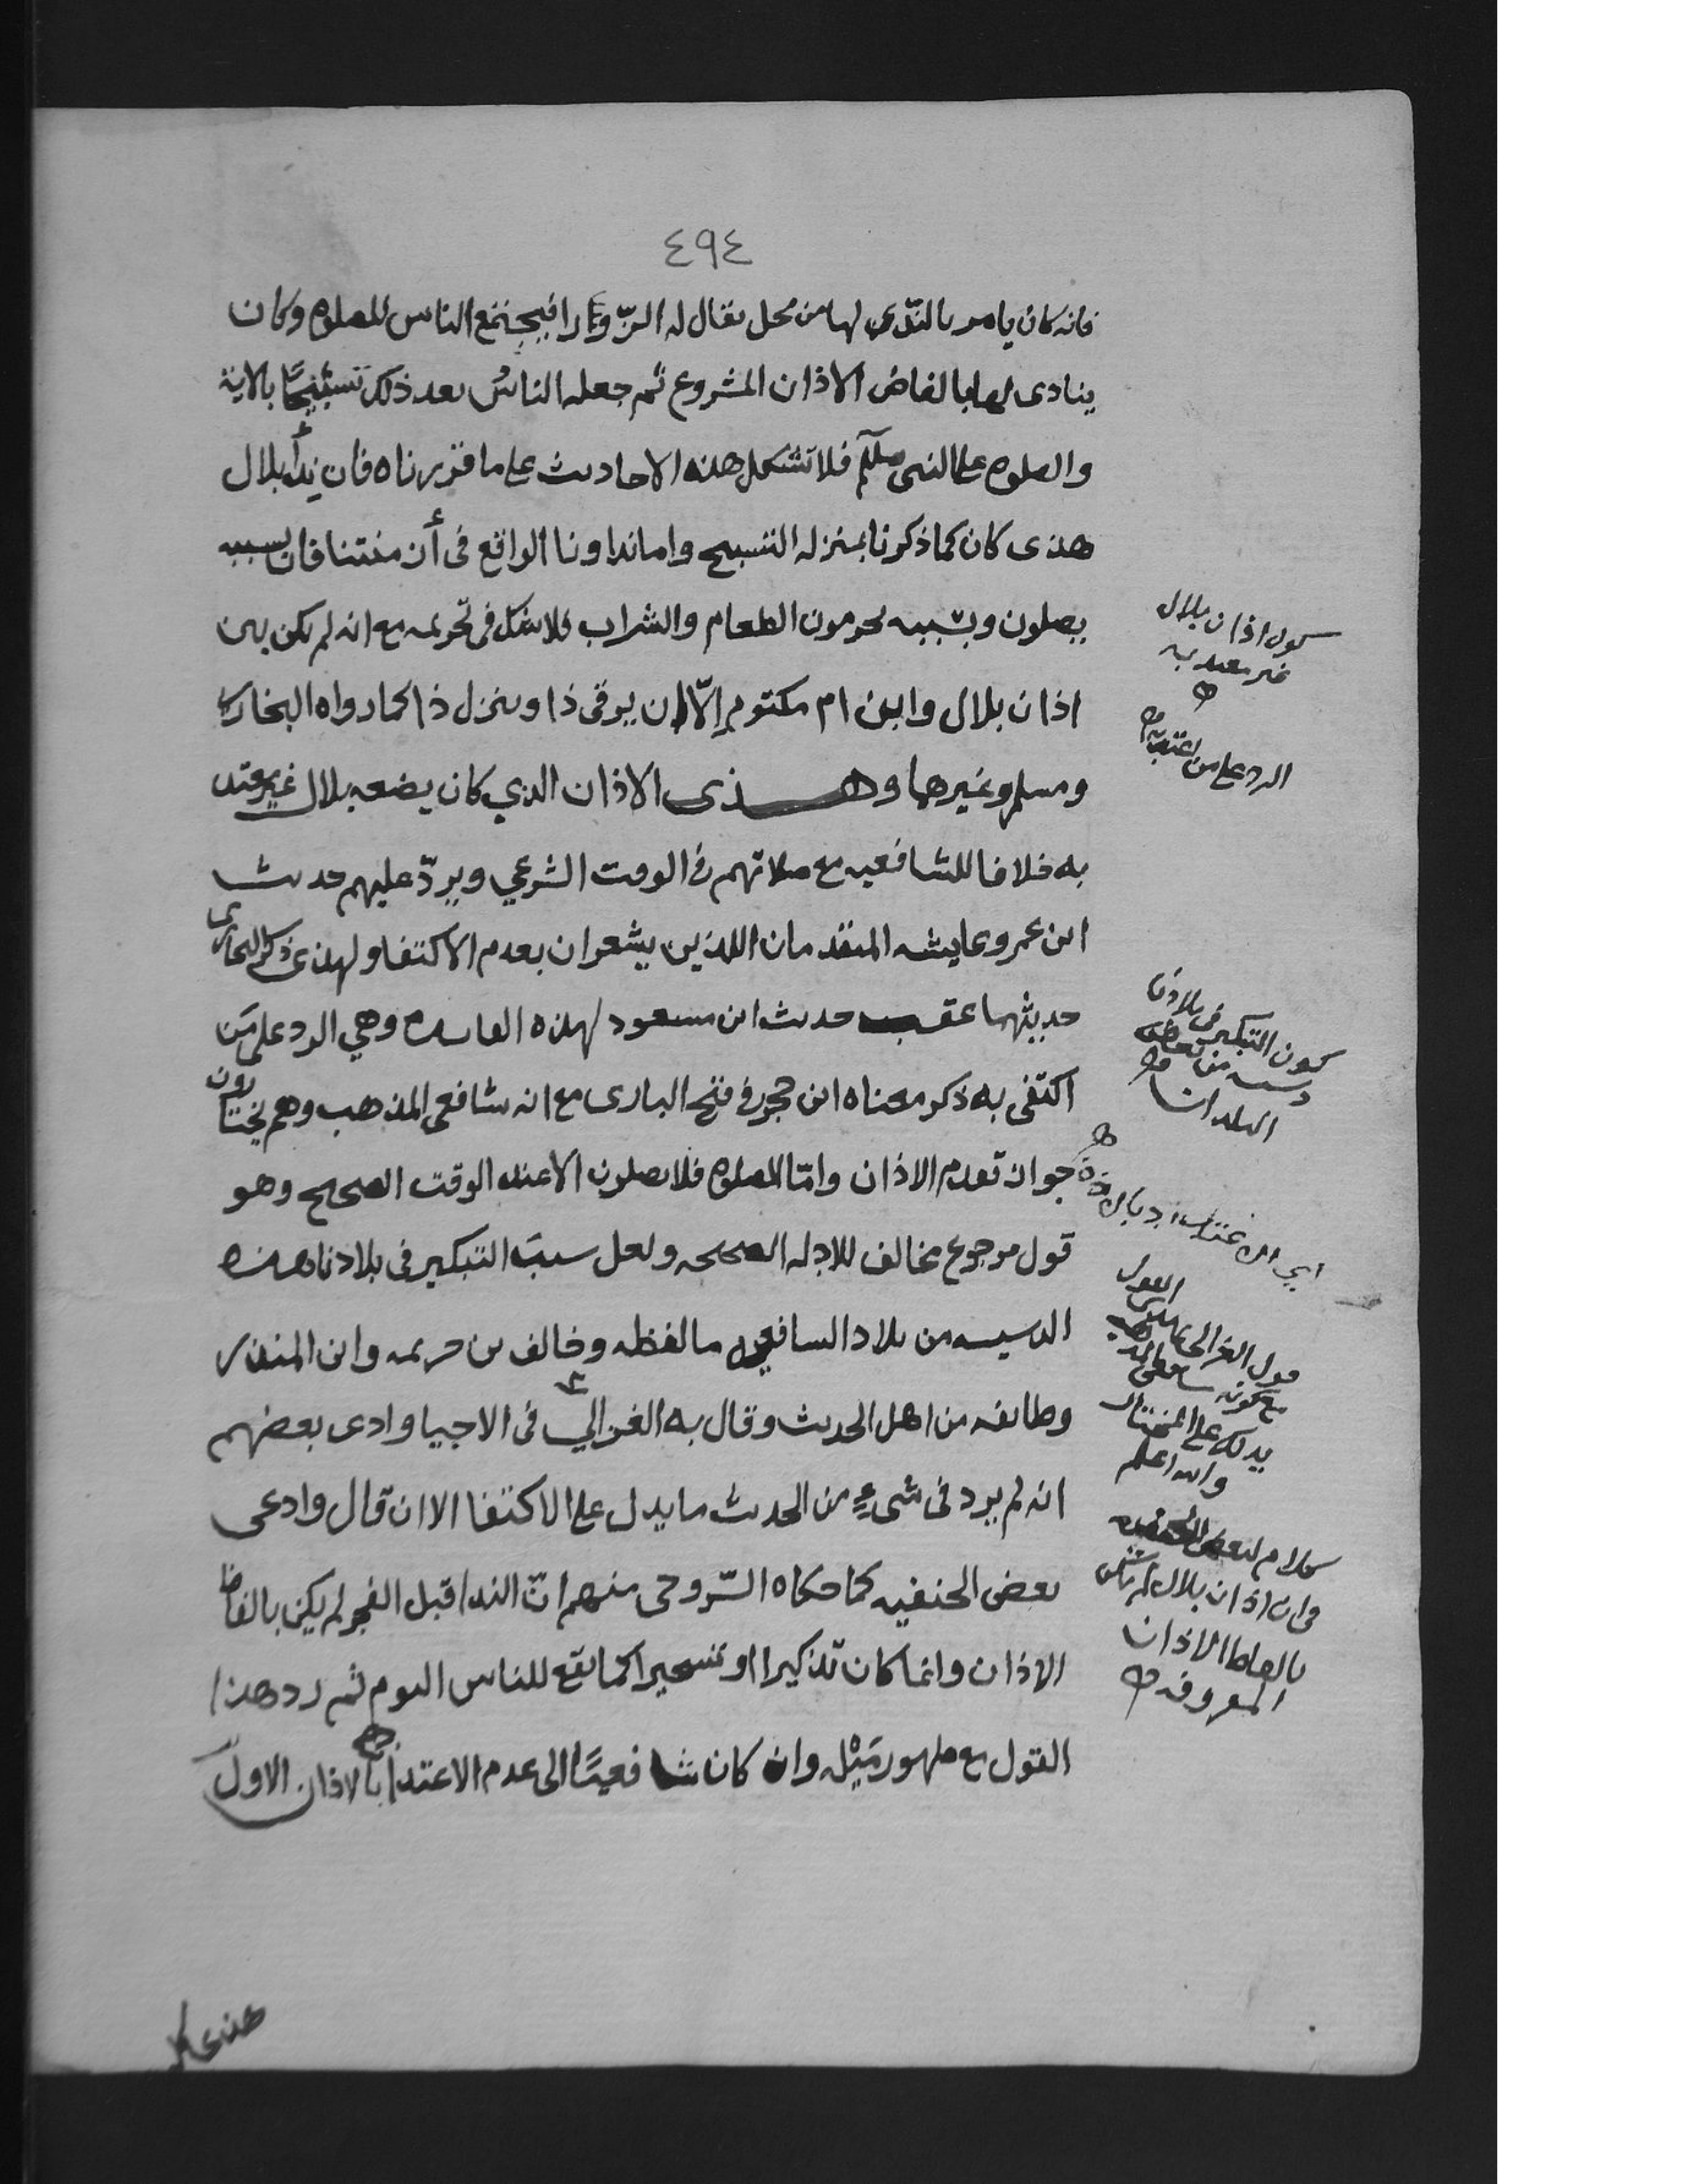 ٤٩٤
فانه كان يامر بالندى لها من محل يقال له الزّورا فيجتمع الناس للصلوه وكان
ينادى لها بالفاض الاذان المشروع ثم جعله الناسُ بعد ذلك تسبيحًا بالاية
والصلوه على النبى صللم فلا تشكل هذه الاحاديث على ما قررناه فان نداً بلال
هذى كان كما ذكرنا بمنزله التسبيح واما نداونا الواقع فى أن منتنا فان بسببه
يصلون وبسببه يحرمون الطعام والشراب فلا شك فى تحريمه مع انه لم يكن بين
اذان بلال وابن ام مكتوم إلّا ان يرقى ذا وينزل ذا كما رواه البخارى
ومسلم وغيرهما وهذى الاذان الذي كان يضعه بلال غير معتد
به خلافا للشافعيه مع صلاتهم فى الوقت الشرعي ويردّ عليهم حديث
ابن عمر وعايشه المتقدمان اللذين يشعران بعدم الاكتفا ولهذى ذكر البخارى
حديثهما عقب حديث ابن مسعود لهذه الفايده وهي الرد على مَن
اكتفى به ذكر معناه ابن حجر فى فتح البارى مع انه شافعى المذهب وهم يختارون
جواز تقدم الاذان وامّا الصلوه فلا يصلون الا عند الوقت الصحيح وهو
قول مرجوع مخالف للادله الصحيحه ولعل سببَ التبكير فى بلادنا هذه
الدسيسه من بلاد السافعيه ما لفظه وخالف بن خريمه وابن المنذر
وطايفه من اهل الحديث وقال به الغزالي فى الاحيا وادى بعضهم
انه لم يرد فى شىءٍ من الحديث ما يدل على الاكتفا الا ان قال وادعى
بعض الحنفيه كما حكاه السّروجى منهم انّ الندا قبل الفجر لم يكن بالفاظ
الاذان وانما كان تذكيرا او تسحيرا كما يقع للناس اليوم ثم رد هذا
القول مع ظهور مَيْله وان كان شافعيًا الى عدم الاعتدا بالاذان الاول
كون اذان بلال
غير معتد به
الرد على من اعتد به
كون التبكير فى بلادنا
دسيسه من بعض
البلدان
اي الاعتداد بالاذان
قول الغزالى
مع كونه شافعى
يدلك على المختار
والله اعلم
كلام لبعض الحنفيه
فى ان اذان بلال لم يكن
بالفاظ الاذان
المعروفه
هذى